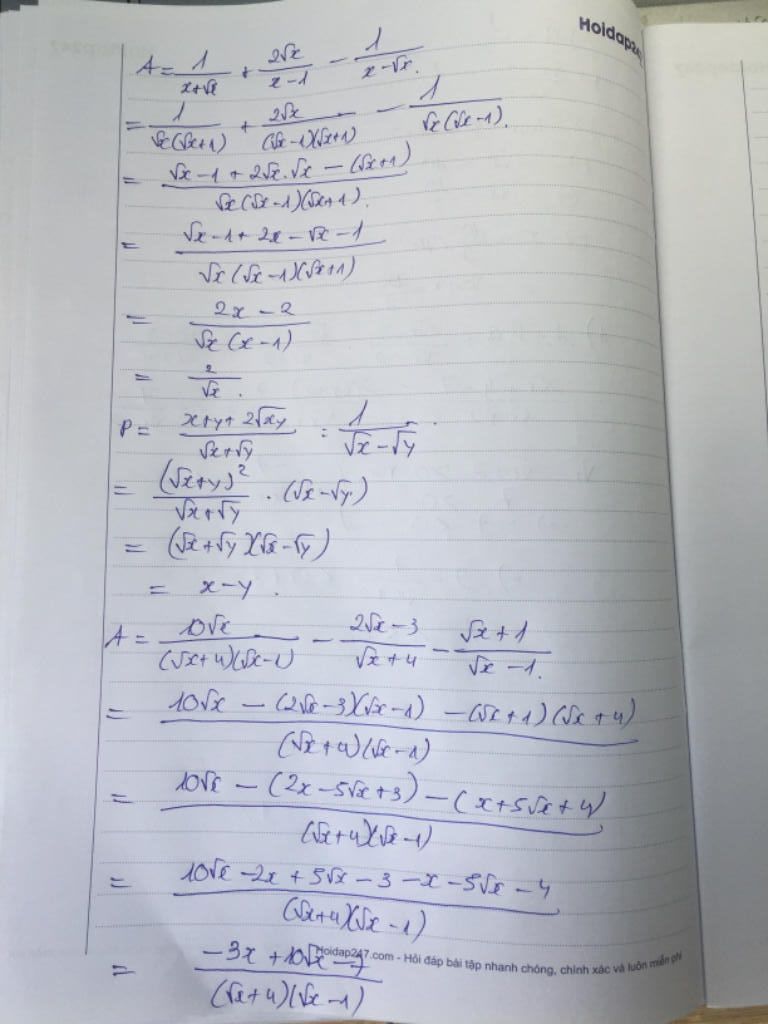 Hoidap247
A = 1/(x+√x) + 2√x/(x-1) - 1/(x-√x).
= 1/(√x(√x+1)) + 2√x/((√x-1)(√x+1)) - 1/(√x(√x-1)).
= (√x-1+2√x.√x-(√x+1))/(√x(√x-1)(√x+1)).
= (√x-1+2x-√x-1)/(√x(√x-1)(√x+1))
= (2x-2)/(√x(x-1))
= 2/√x.
P = (x+y+2√xy)/(√x+√y) : 1/(√x-√y).
= (√x+y)²/(√x+√y) . (√x-√y)
= (√x+√y)(√x-√y)
= x-y.
A = 10√x/((√x+4)(√x-1)) - (2√x-3)/(√x+4) - (√x+1)/(√x-1).
= (10√x-(2√x-3)(√x-1)-(√x+1)(√x+4))/((√x+4)(√x-1))
= (10√x-(2x-5√x+3)-(x+5√x+4))/((√x+4)(√x-1))
= (10√x-2x+5√x-3-x-5√x-4)/((√x+4)(√x-1))
= (-3x+10√x-7)/((√x+4)(√x-1))
Hoidap247.com - Hỏi đáp bài tập nhanh chóng, chính xác và luôn miễn phí